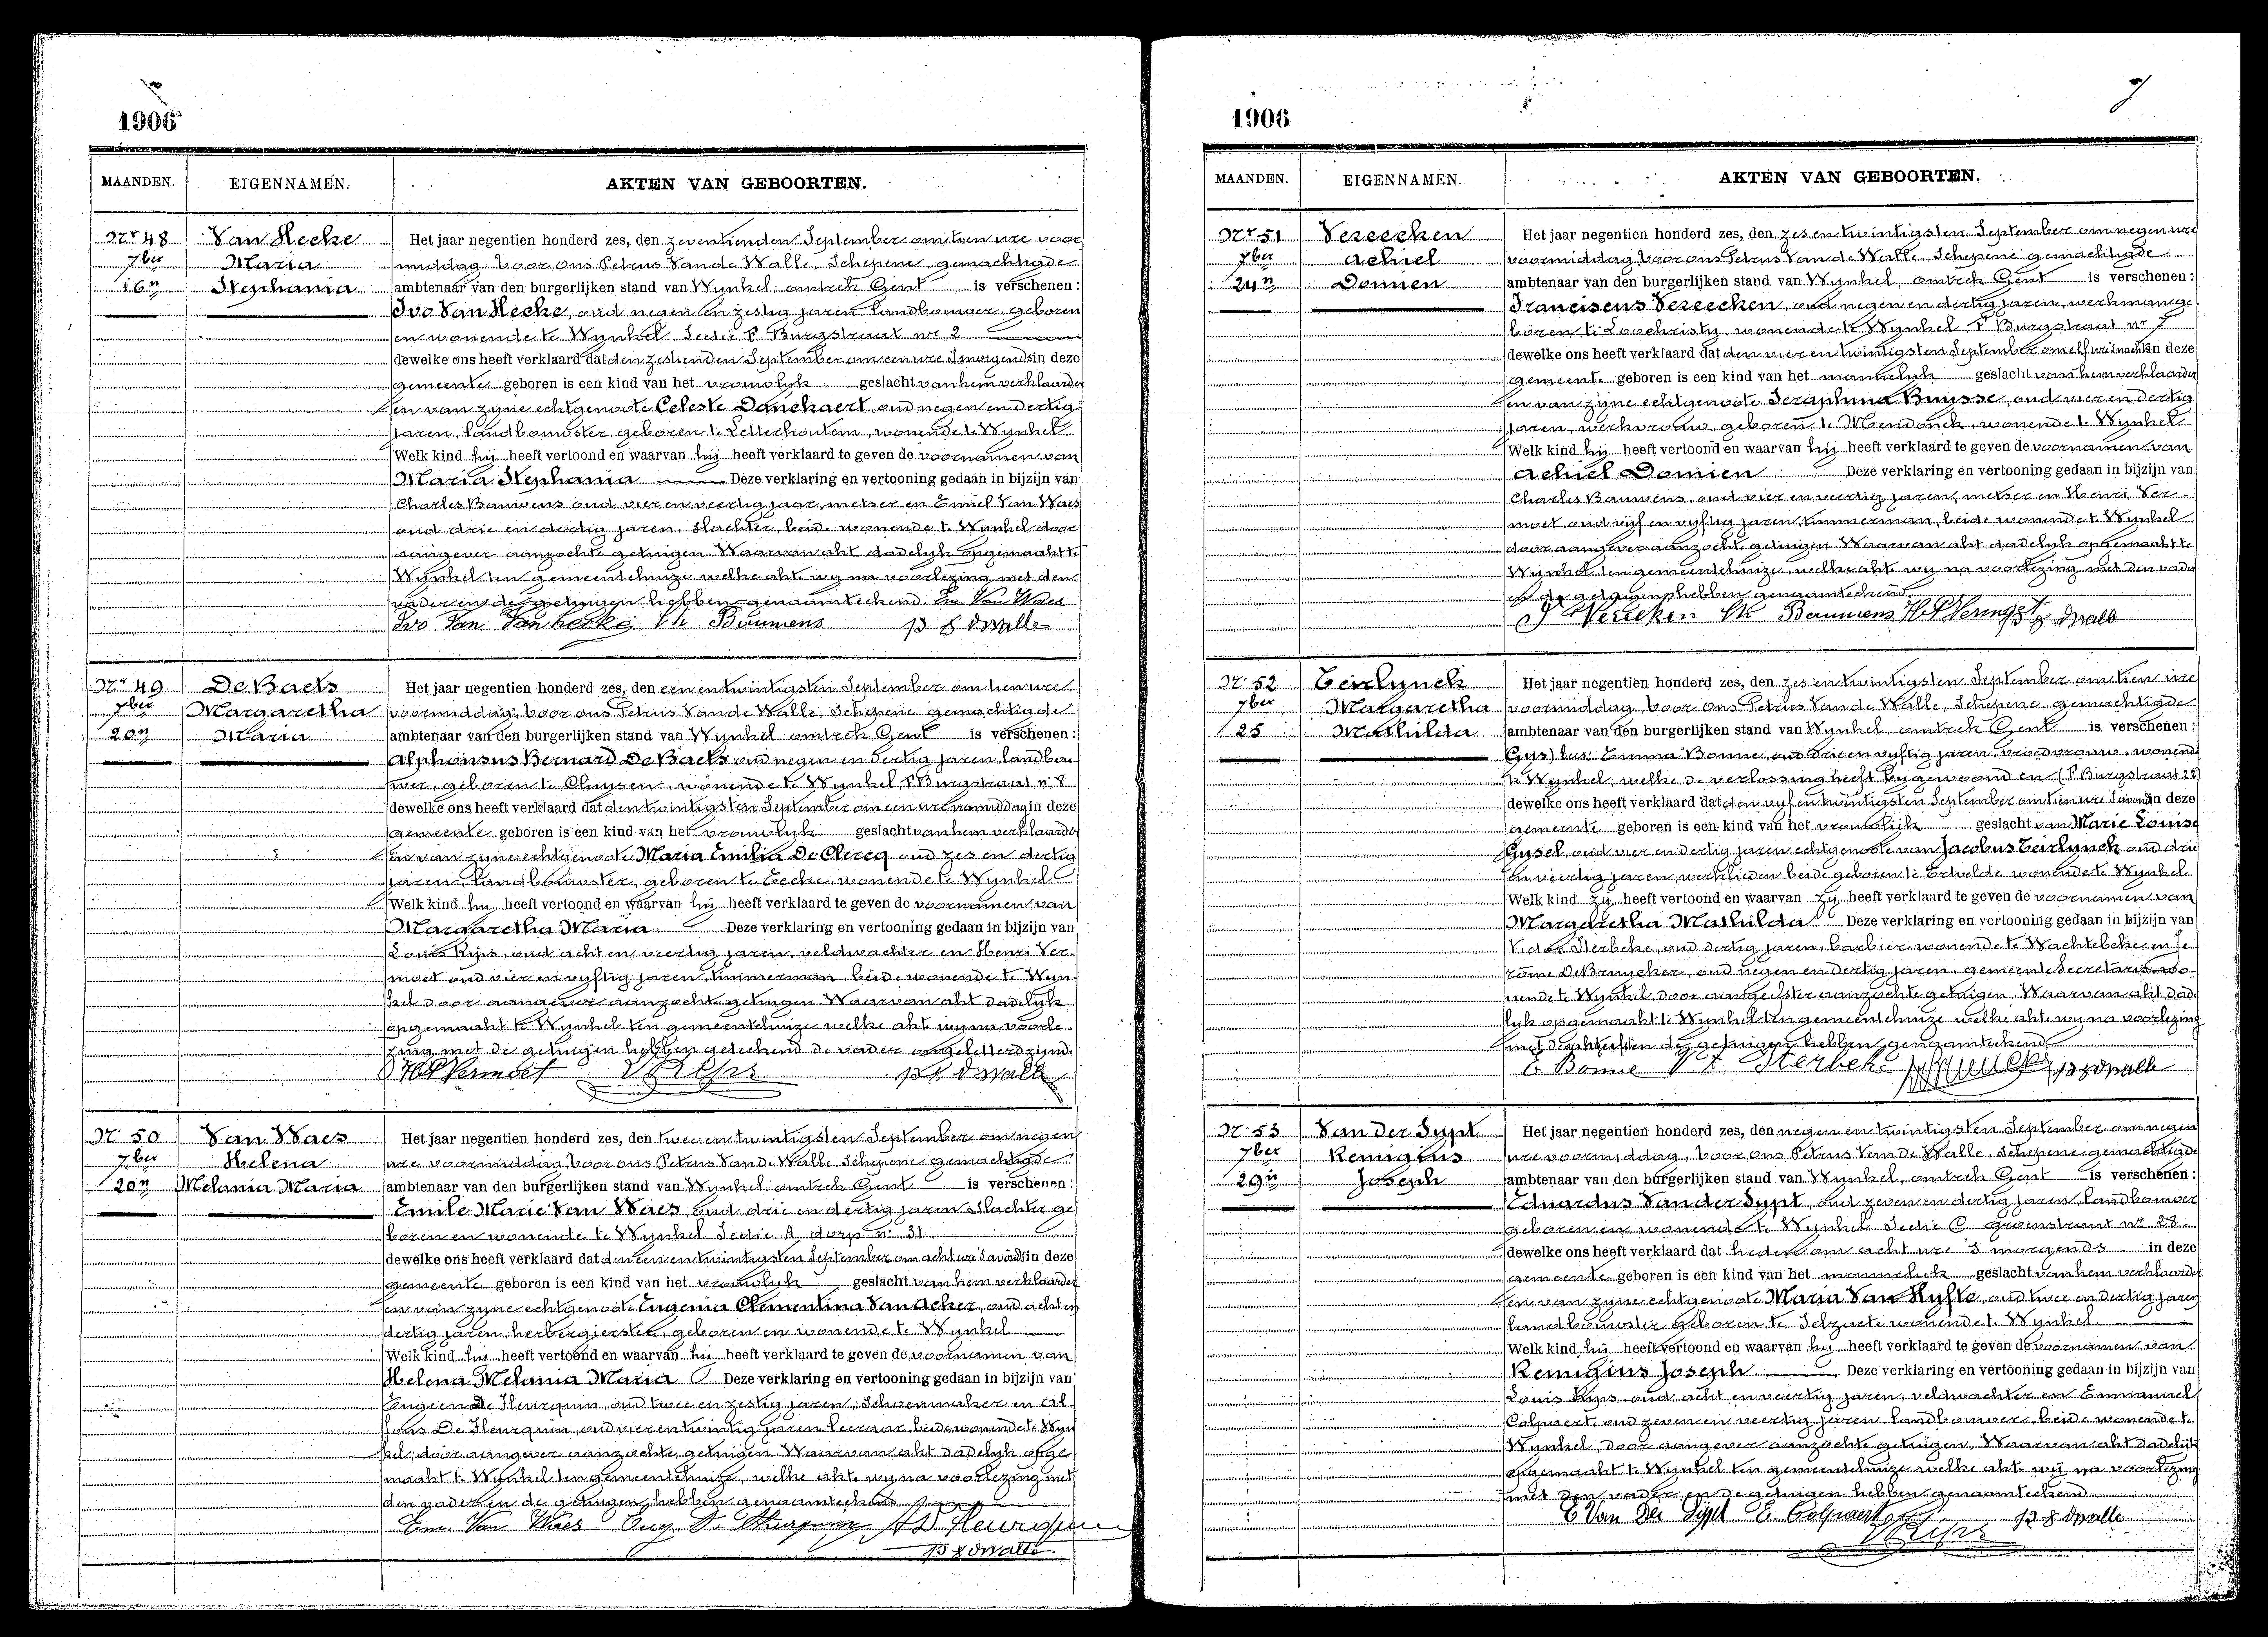 1906
MAANDEN. EIGENNAMEN. AKTEN VAN GEBOORTEN.
Nr 48 Van Hecke Het jaar negentien honderd zes, den zeventienden September om tien ure voor
7ber Maria middag voor ons Petrus Van de Walle, Schepene gemachtigde
16n Stephania ambtenaar van den burgerlijken stand van Wynkel omtrek Gent is verschenen:
Ivo Van Hecke, oud negen en zestig jaren landbouwer, geboren
en wonende te Wynkel Sectie F Burgstraat nr 2
dewelke ons heeft verklaard dat den zestienden September om een ure 's morgends in deze
gemeente geboren is een kind van het vrouwlyk geslacht van hem verklaarder
en van zyne echtgenoote Celeste Danckaert oud negen en dertig
jaren, landbouwster, geboren te Letterhoutem, wonende te Wynkel
Welk kind hij heeft vertoond en waarvan hij heeft verklaard te geven de voornamen van
Maria Stephania Deze verklaring en vertooning gedaan in bijzijn van
Charles Bauwens oud vier en veertig jaar, metser en Emiel Van Waes
oud drie en dertig jaren, slachter, beide wonende te Wynkel door
aangever aanzochte getuigen Waarvan akt dadelyk opgemaakt te
Wynkel ten gemeentehuize welke akte wy na voorlezing met den
vader en de getuigen hebben genaamteekend Em Van Waes
Ivo Van Vanhecke Ch Bauwens P Vdwalle
Nr 49 De Baets Het jaar negentien honderd zes, den een en twintigsten September om tien ure
7ber Margaretha voormiddag, voor ons Petrus Van de Walle, Schepene gemachtigde
20n Maria ambtenaar van den burgerlijken stand van Wynkel omtrek Gent is verschenen:
Alphonsus Bernard De Baets oud negen en dertig jaren landbou
wer, geboren te Cluysen, wonende te Wynkel, F Burgstraat n 8
dewelke ons heeft verklaard dat den twintigsten September om een ure namiddag in deze
gemeente geboren is een kind van het vrouwlyk geslacht van hem verklaarder
en van zyne echtgenoote Maria Emilia De Clercq oud zes en dertig
jaren, landbouwster, geboren te Eecke, wonende te Wynkel
Welk kind hij heeft vertoond en waarvan hij heeft verklaard te geven de voornamen van
Margaretha Maria Deze verklaring en vertooning gedaan in bijzijn van
Louis Rijs, oud acht en veertig jaren, veldwachter en Henri Ver-
moet oud vier en vyftig jaren, timmerman, beide wonende te Wyn-
kel door aangever aanzochte getuigen Waarvan akt dadelyk
opgemaakt te Wynkel ten gemeentehuize welke akt wy na voorle-
zing met de getuigen hebben geteekend de vader ongeletterd zijnde
H Vermoet P Vdwalle
Nr 50 Van Waes Het jaar negentien honderd zes, den twee en twintigsten September om negen
7ber Helena ure voormiddag, voor ons Petrus Van de Walle Schepene gemachtigde
20n Melania Maria ambtenaar van den burgerlijken stand van Wynkel omtrek Gent is verschenen:
Emile Marie Van Waes, oud drie en dertig jaren slachter ge
boren en wonende te Wynkel Sectie A dorp n 31
dewelke ons heeft verklaard dat den een en twintigsten September om acht ure 's avonds in deze
gemeente geboren is een kind van het vrouwlyk geslacht van hem verklaarder
en van zyne echtgenoote Eugenia Clementina Van Acker, oud acht en
dertig jaren, herbergierster, geboren en wonende te Wynkel
Welk kind hij heeft vertoond en waarvan hij heeft verklaard te geven de voornamen van
Helena Melania Maria Deze verklaring en vertooning gedaan in bijzijn van
Eugeen De Fleurquin, oud twee en zestig jaren, Schoenmaker en Al
fons De Fleurquin, oud vier en twintig jaren leeraar, beide wonende te Wyn
kel, door aangever aanzochte getuigen Waarvan akt dadelyk opge
maakt te Wynkel ten gemeentehuize, welke akte wy na voorlezing met
den vader en de getuigen hebben genaamteekend
Em. Van Waes Eug. De Fleurquin A D Fleurquin
P Vdwalle
1906
7
MAANDEN. EIGENNAMEN. AKTEN VAN GEBOORTEN.
Nr 51 Vereecken Het jaar negentien honderd zes, den zes en twintigsten September om negen ure
7ber Achiel voormiddag, voor ons Petrus Van de Walle, Schepene gemachtigde
24n Domien ambtenaar van den burgerlijken stand van Wynkel, omtrek Gent is verschenen:
Franciscus Vereecken, oud negen en dertig jaren, werkman ge
boren te Loochristy, wonende te Wynkel F Burgstraat nr 7
dewelke ons heeft verklaard dat den vier en twintigsten September om elf ure 's nachts in deze
gemeente geboren is een kind van het mannelyk geslacht van hem verklaarder
en van zyne echtgenoote Seraphina Buysse, oud vier en dertig
jaren, werkvrouw, geboren te Mendonck, wonende te Wynkel
Welk kind hij heeft vertoond en waarvan hij heeft verklaard te geven de voornamen van
Achiel Domien Deze verklaring en vertooning gedaan in bijzijn van
Charles Bauwens, oud vier en veertig jaren, metser en Henri Ver-
moet oud vijf en vyftig jaren, timmerman, beide wonende te Wynkel
door aangever aanzochte getuigen Waarvan akt dadelyk opgemaakt te
Wynkel ten gemeentehuize, welke akte wy na voorlezing met den vader
en de getuigen hebben genaamteekend
F Vereeken Ch Bauwens H Vermoet P Vdwalle
Nr 52 Teirlynck Het jaar negentien honderd zes, den zes en twintigsten September om tien ure
7ber Margaretha voormiddag, voor ons Petrus Van de Walle, Schepene gemachtigde
25 Mathilda ambtenaar van den burgerlijken stand van Wynkel, omtrek Gent is verschenen:
Emma Bonne, oud drie en vyftig jaren, vroedvrouw, wonende
te Wynkel, welke de verlossing heeft bygewoond en (F Burgstraat 22)
dewelke ons heeft verklaard dat den vyf en twintigsten September om tien ure 's avonds in deze
gemeente geboren is een kind van het vrouwlijk geslacht van Marie Louise
Gysel, oud vier en dertig jaren echtgenoote van Jacobus Teirlynck oud drie
en veertig jaren, werklieden beide geboren te Ertvelde wonende te Wynkel
Welk kind zy heeft vertoond en waarvan zy heeft verklaard te geven de voornamen van
Margaretha Mathilda Deze verklaring en vertooning gedaan in bijzijn van
Victor Sterbeke, oud dertig jaren, barbier wonende te Wachtebeke en Je
rôme De Bruycker, oud negen en dertig jaren, gemeente Secretaris wo-
nende te Wynkel, door aangeefster aanzochte getuigen. Waarvan akt dade
lyk opgemaakt te Wynkel ten gemeentehuize welke akte wy na voorlezing
met de aangeefster en de getuigen hebben genaamteekend
E Bonne Vr Sterbeke P Vdwalle
Nr 53 Van Der Sypt Het jaar negentien honderd zes, den negen en twintigsten September om negen
7ber Remigius ure voormiddag, voor ons Petrus Van de Walle, Schepene gemachtigde
29n Joseph ambtenaar van den burgerlijken stand van Wynkel, omtrek Gent is verschenen:
Eduardus Van der Sypt, oud zeven en dertig jaren, landbouwer
geboren en wonende te Wynkel Sectie C groenstraat nr 28
dewelke ons heeft verklaard dat heden om acht ure 's morgends in deze
gemeente geboren is een kind van het mannelyk geslacht van hem verklaarder
en van zyne echtgenoote Maria Van Hyfte, oud twee en dertig jaren
landbouwster geboren te Selzaete wonende te Wynkel
Welk kind hij heeft vertoond en waarvan hij heeft verklaard te geven de voornamen van
Remigius Joseph Deze verklaring en vertooning gedaan in bijzijn van
Louis Rijs oud acht en veertig jaren, veldwachter en Emmanuel
Colpaert oud zeven en veertig jaren landbouwer, beide wonende te
Wynkel, door aangever aanzochte getuigen, Waarvan akt dadelijk
opgemaakt te Wynkel ten gemeentehuize welke akte wij na voorlezing
met den vader en de getuigen hebben genaamteekend
E Van Der Sypt E. Colpaert P Vdwalle